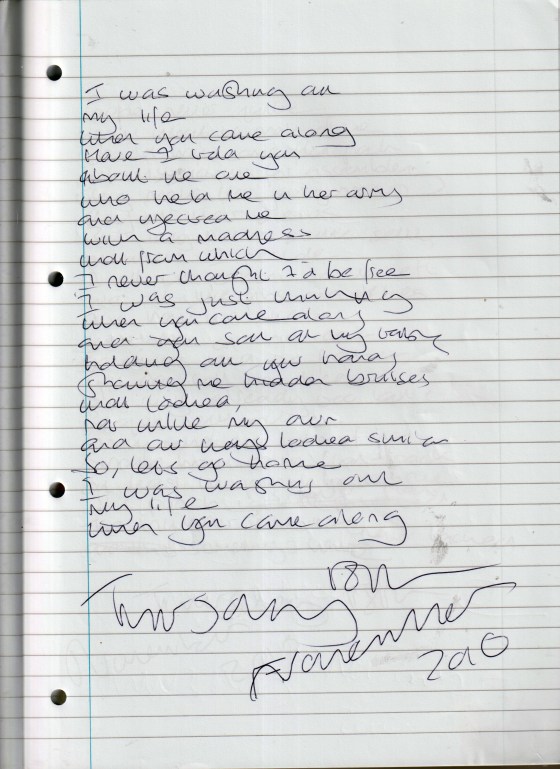 I was washing out
my life
when you came along
Have I told you
about the one
who held me in her arms
and injected me
with a madness
that from which
I never thought I'd be free
I was just thinking
when you came along
and you sat at my table
holding out your hands
Showing me hidden bruises
that looked,
not unlike my own
and our lives looked similar
So, lets go home
I was washing out
my life
when you came along
18th
Thursday
November
2010